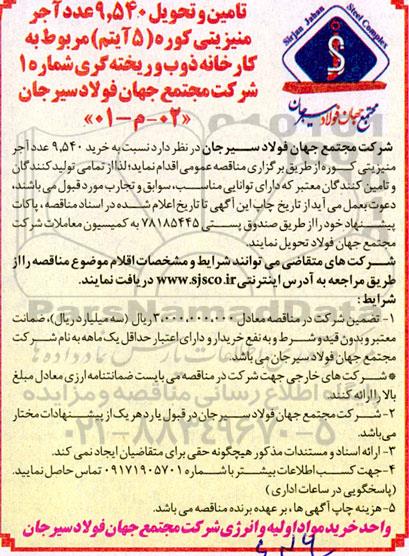 تامین و تحویل ۹,۵۴۰ عدد آجر
منیزیتی کوره (۵ آیتم) مربوط به
کارخانه ذوب و ریخته گری شماره ۱
شرکت مجتمع جهان فولاد سیرجان
«۰۲-م-۰۱»
Sirjan Jahan Steel Complex
مجتمع جهان فولاد سیرجان
شرکت مجتمع جهان فولاد سیرجان در نظر دارد نسبت به خرید ۹,۵۴۰ عدد آجر
منیزیتی کوره از طریق برگزاری مناقصه عمومی اقدام نماید؛ لذا از تمامی تولیدکنندگان
و تامین کنندگان معتبر که دارای توانایی مناسب، سوابق و تجارب مورد قبول می باشند،
دعوت بعمل می آید از تاریخ چاپ این آگهی تا تاریخ اعلام شده در اسناد مناقصه، پاکات
پیشنهاد خود را از طریق صندوق پستی ۷۸۱۸۵۴۴۵ به کمیسیون معاملات شرکت
مجتمع جهان فولاد تحویل نمایند.
شرکت های متقاضی می توانند شرایط و مشخصات اقلام موضوع مناقصه را از
طریق مراجعه به آدرس اینترنتی www.sjsco.ir دریافت نمایند.
شرایط :
۱- تضمین شرکت در مناقصه معادل ۳,۰۰۰,۰۰۰,۰۰۰ ریال (سه میلیارد ریال)، ضمانت
معتبر و بدون قید و شرط و به نفع خریدار و دارای اعتبار حداقل یک ماهه به نام شرکت
مجتمع جهان فولاد سیرجان می باشد.
* شرکت های خارجی جهت شرکت در مناقصه می بایست ضمانتنامه ارزی معادل مبلغ
بالا را ارائه کنند.
۲- شرکت مجتمع جهان فولاد سیرجان در قبول یا رد هر یک از پیشنهادات مختار
می باشد.
۳- ارائه اسناد و مستندات مذکور هیچگونه حقی برای متقاضیان ایجاد نمی کند.
۴- جهت کسب اطلاعات بیشتر با شماره ۰۹۱۷۱۹۰۵۷۰۱ تماس حاصل نمایید.
(پاسخگویی در ساعات اداری)
۵- هزینه چاپ آگهی ها، بر عهده برنده مناقصه می باشد.
واحد خرید مواد اولیه و انرژی شرکت مجتمع جهان فولاد سیرجان
ParsNamadData
۰۲۱-۸۸۳۴۹۶۷۰-۵